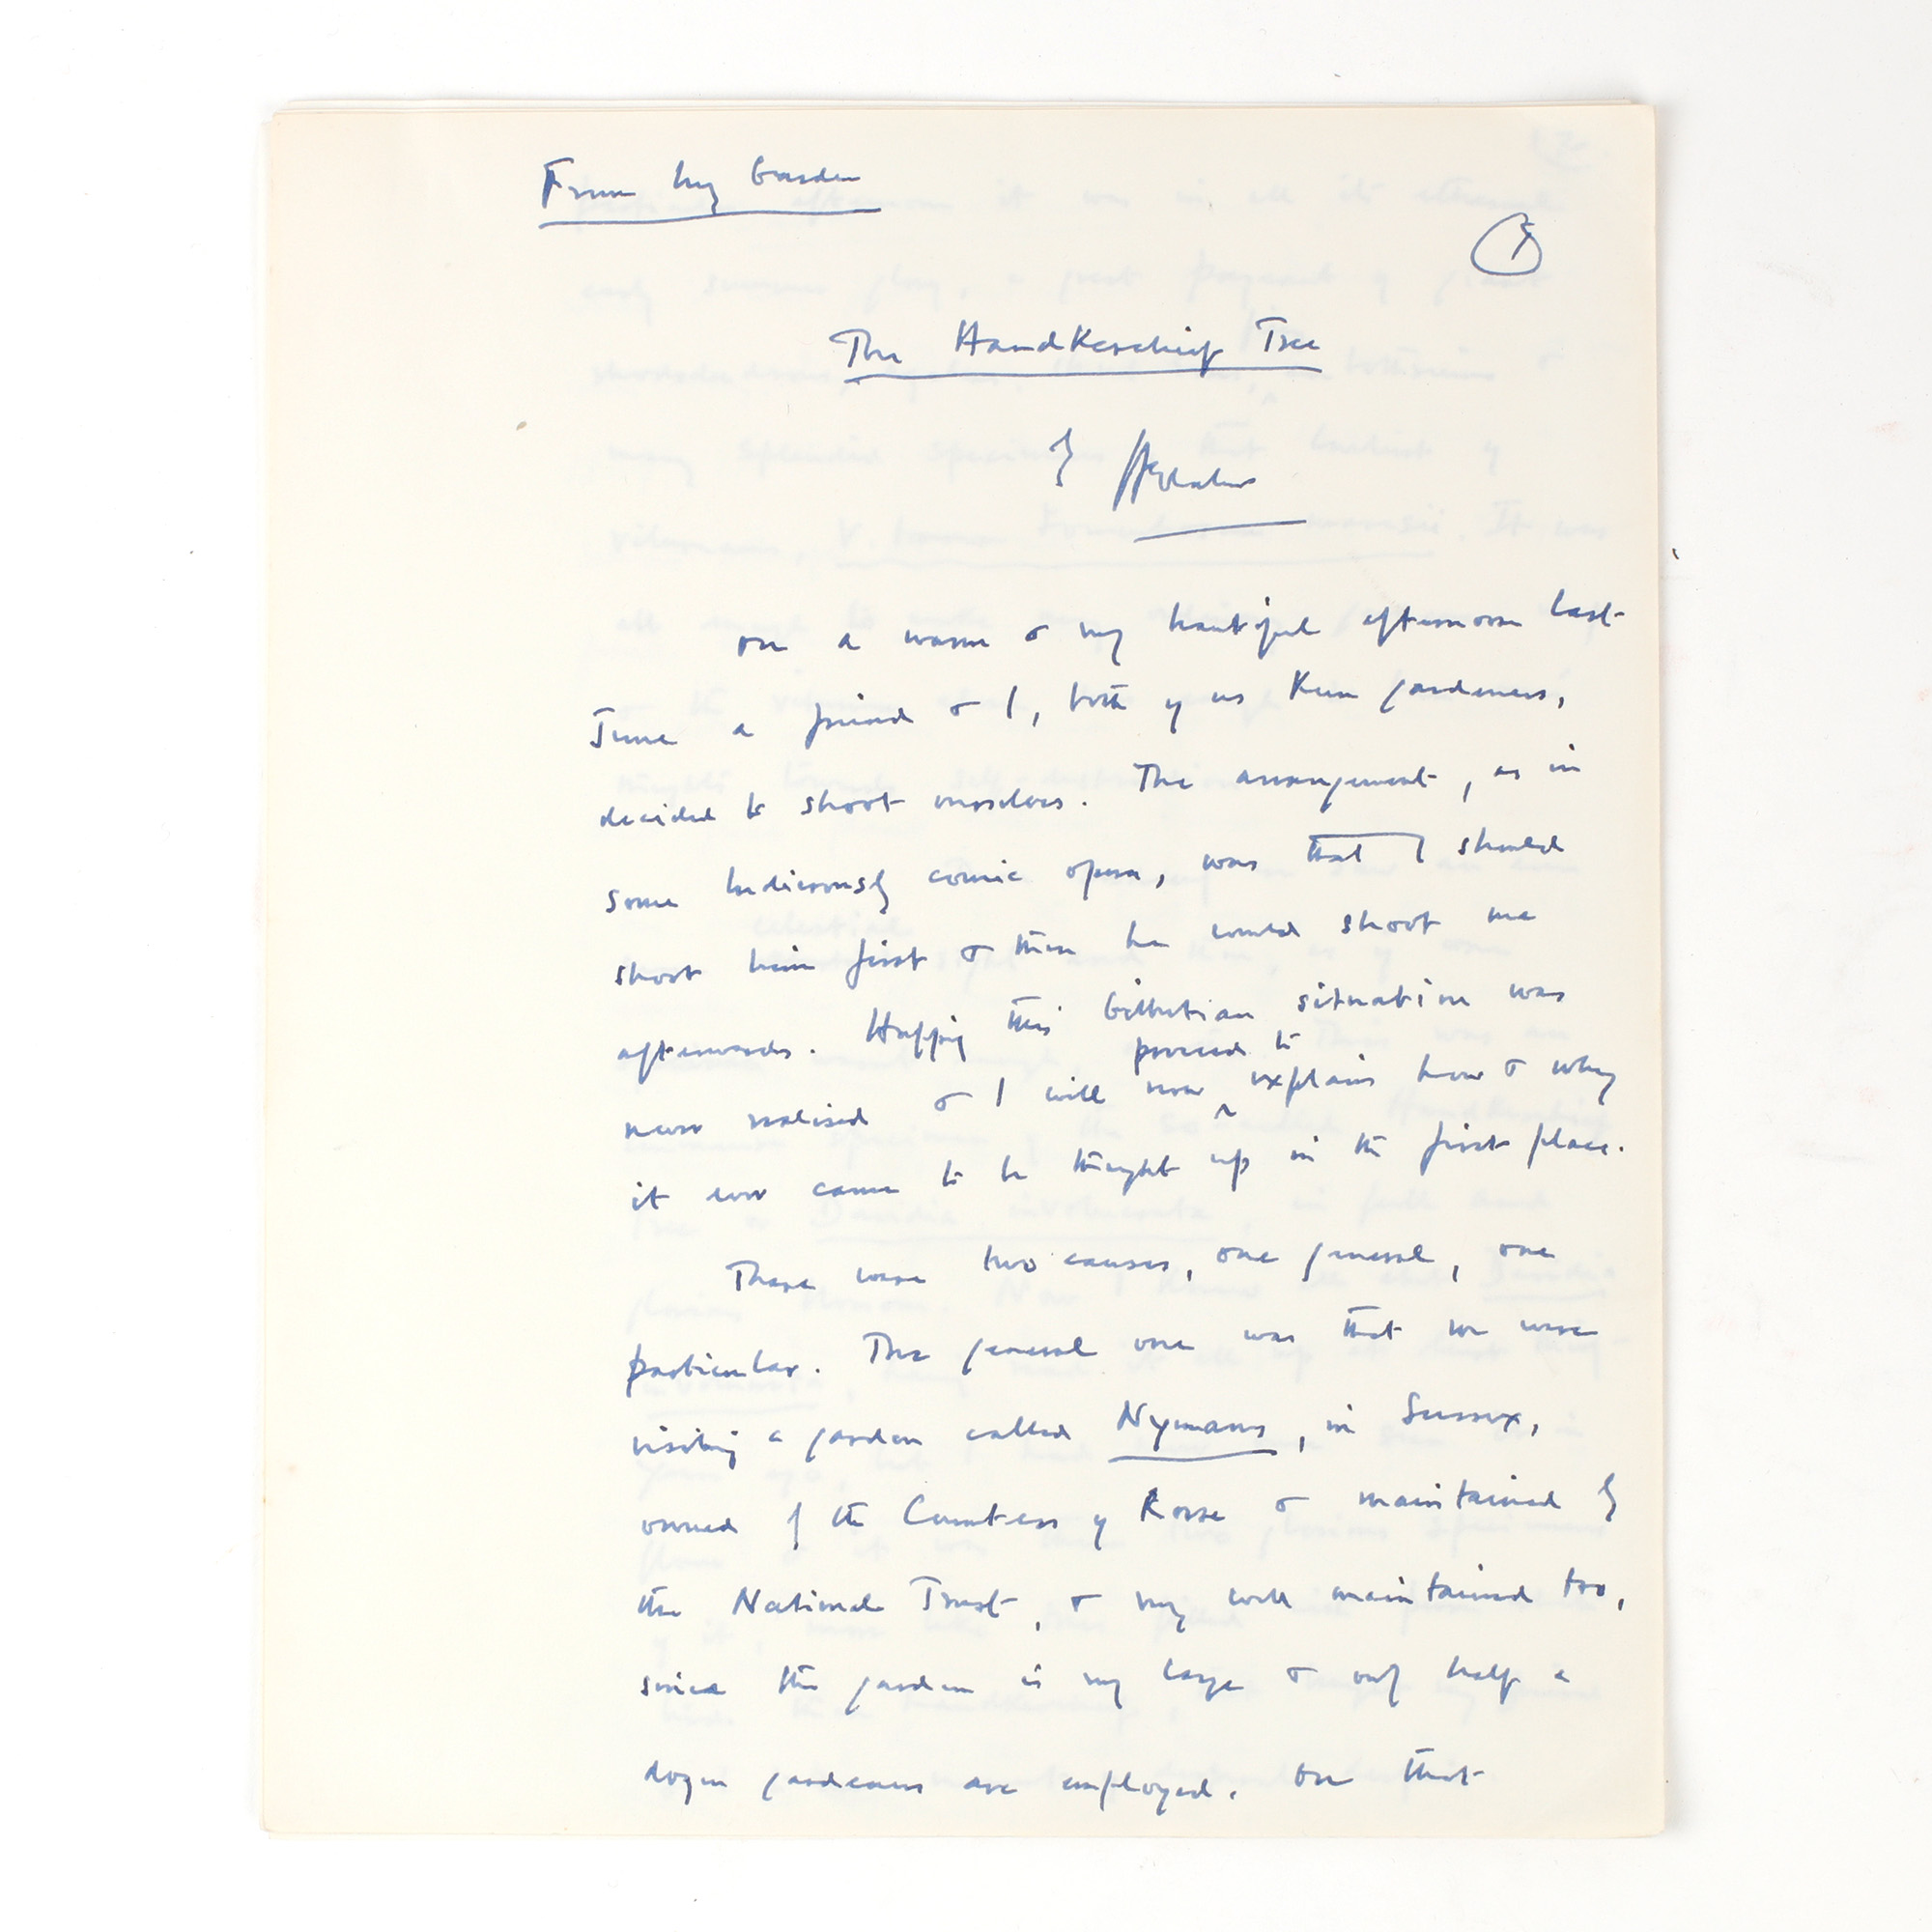 From my Garden
The Handkerchief Tree
by
on a warm & very beautiful afternoon last
June a friend & I, both of us Keen gardeners,
decided to shoot ourselves. The arrangement, as in
some ludicrously comic opera, was that I should
shoot him first & then he would shoot me
afterwards. Happily this Gilbertian situation was
never realised & I will now proceed to explain how & why
it ever came to be thought up in the first place.
There were two causes, one general, one
particular. The general one was that we were
visiting a garden called Nymans, in Sussex,
owned by the Countess of Rosse & maintained by
the National Trust, & very well maintained too,
since the garden is very large & only half a
dozen gardeners are employed. On that